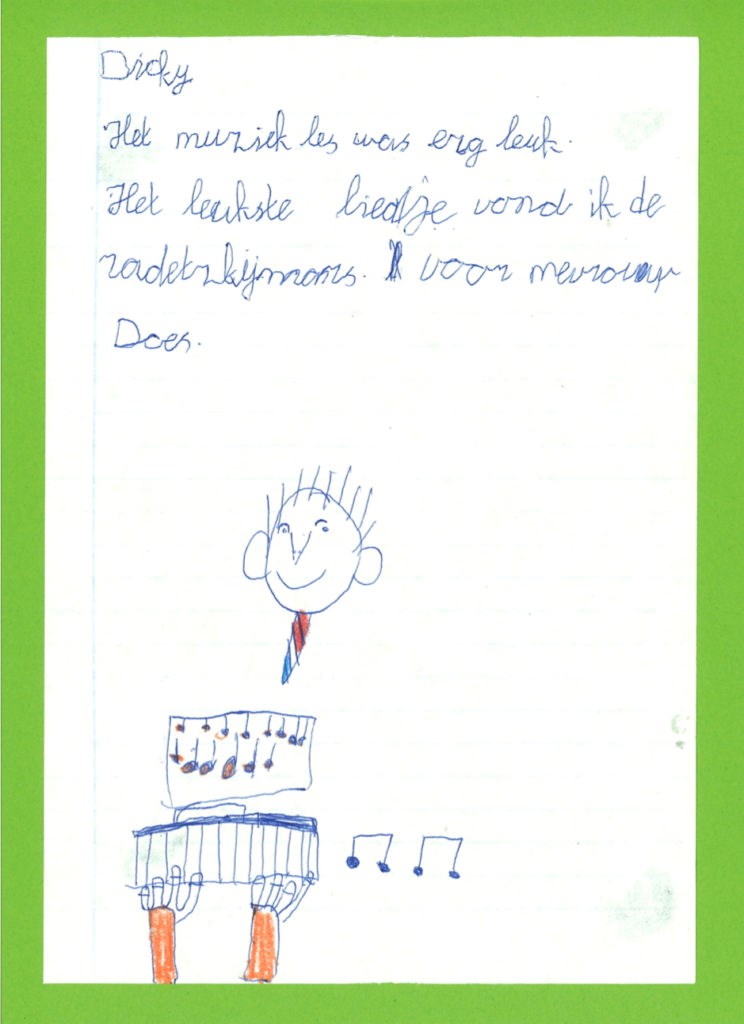 Dicky
Het muziek les was erg leuk.
Het leukste liedje vond ik de
radetzkijmars. voor mevrouw
Does.